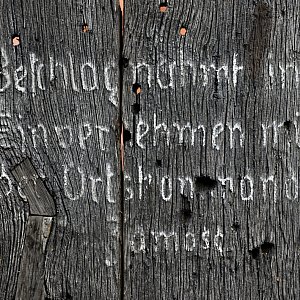 Beschlagnahmt im
Einvernehmen mi
der Ortskommand
Zamosc